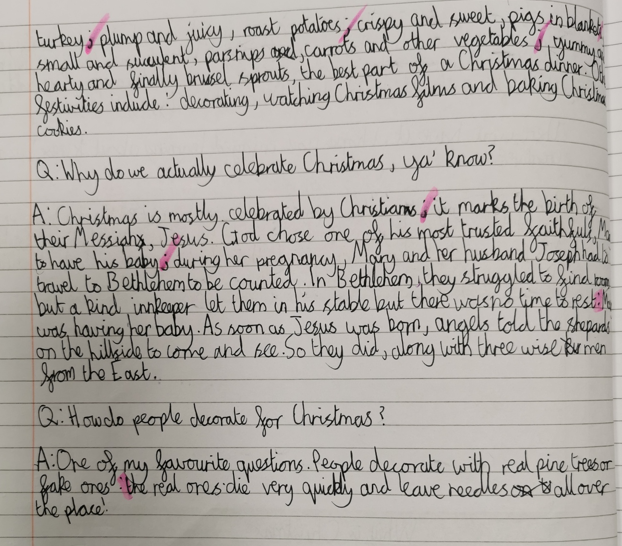 turkey; plump and juicy, roast potatoes; crispy and sweet, pigs in blankets
small and succulent, parsnips, carrots and other vegetables; yummy
hearty and finally brussel sprouts, the best part of a Christmas dinner.
festivities include: decorating, watching Christmas films and baking Christmas
cookies.
Q: Why do we actually celebrate Christmas, ya' know?
A: Christmas is mostly celebrated by Christians; it marks the birth of
their Messiah, Jesus. God chose one of his most trusted faithfuls,
to have his baby; during her pregnancy, Mary and her husband Joseph had to
travel to Bethlehem to be counted. In Bethlehem, they struggled to find room
but a kind innkeeper let them in his stable but there was no time to rest:
was having her baby. As soon as Jesus was born, angels told the shepards
on the hillside to come and see. So they did, along with three wise men
from the East.
Q: How do people decorate for Christmas?
A: One of my favourite questions. People decorate with real pine trees or
fake ones: the real ones die very quickly and leave needles all over
the place!